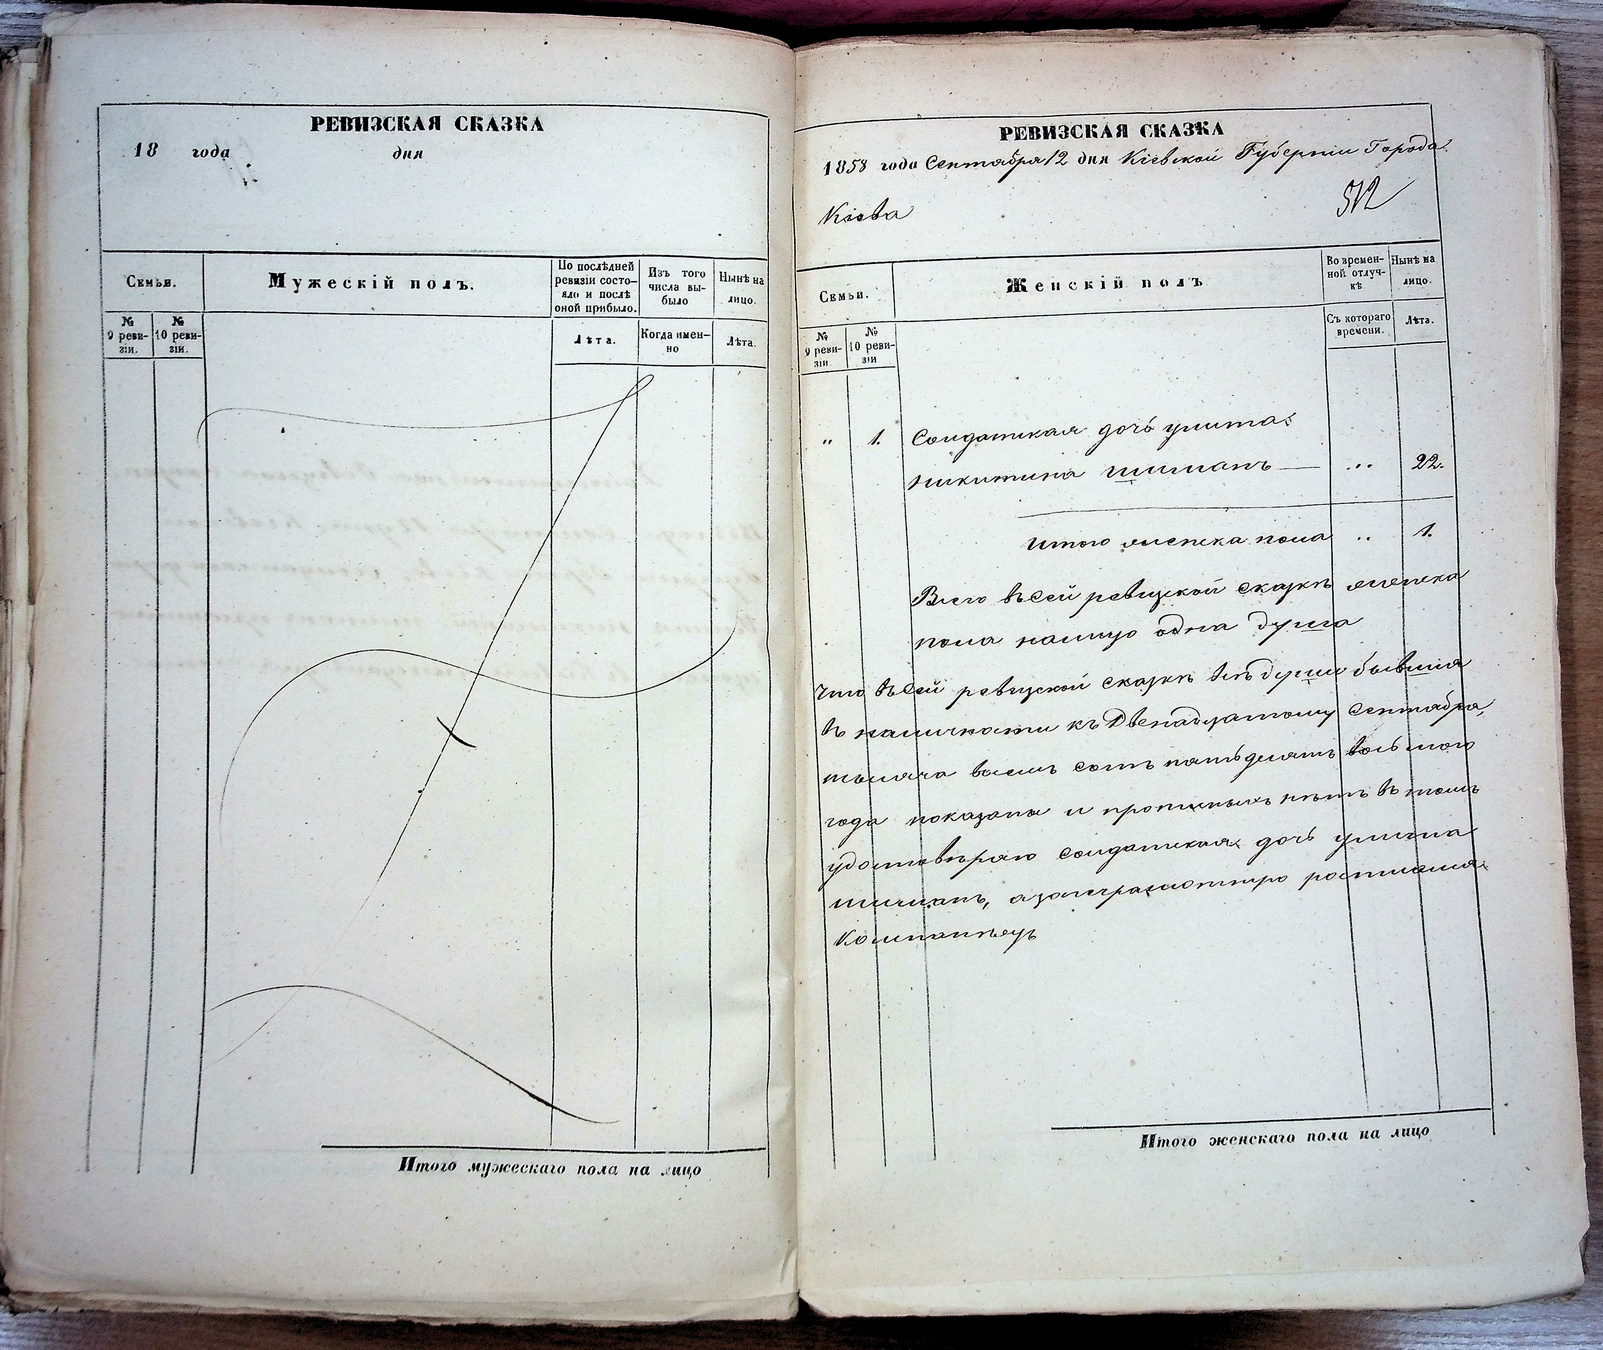 РЕВИЗСКАЯ СКАЗКА
18 года дня
Семьи.
Мужескій полъ.
По послѣдней
ревизіи состо-
яло и послѣ
оной прибыло.
Изъ того
числа вы-
было
Нынѣ на
лицо.
№
9 реви-
зіи.
№
10 реви-
зіи.
Лѣта.
Когда имен-
но
Лѣта.
Итого мужескаго пола на лицо
РЕВИЗСКАЯ СКАЗКА
1858 года Сентября 12 дня Кіевской Губерніи Города
Кіева
512
Семьи.
Женскій полъ
Во времен-
ной отлуч-
кѣ
Нынѣ на
лицо.
№
9 реви-
зіи
№
10 реви-
зіи
Съ котораго
времени.
Лѣта.
„ 1. Солдатская дочь улита
никитина шиманъ — ... 22.
итого женска пола .. 1.
Всего въ сей ревизской сказкѣ женска
пола налицо одна душа
Что въ сей ревизской сказкѣ всѣ души бывшія
въ наличности къ Двенадцатому сентября,
тысяча восемъ сотъ пятьдесятъ восьмого
года показаны и прописныхъ нѣтъ въ томъ
удостовѣряю солдатская дочь улита
шиманъ, а за неграмотную росписался
Компанѣецъ
Итого женскаго пола на лицо